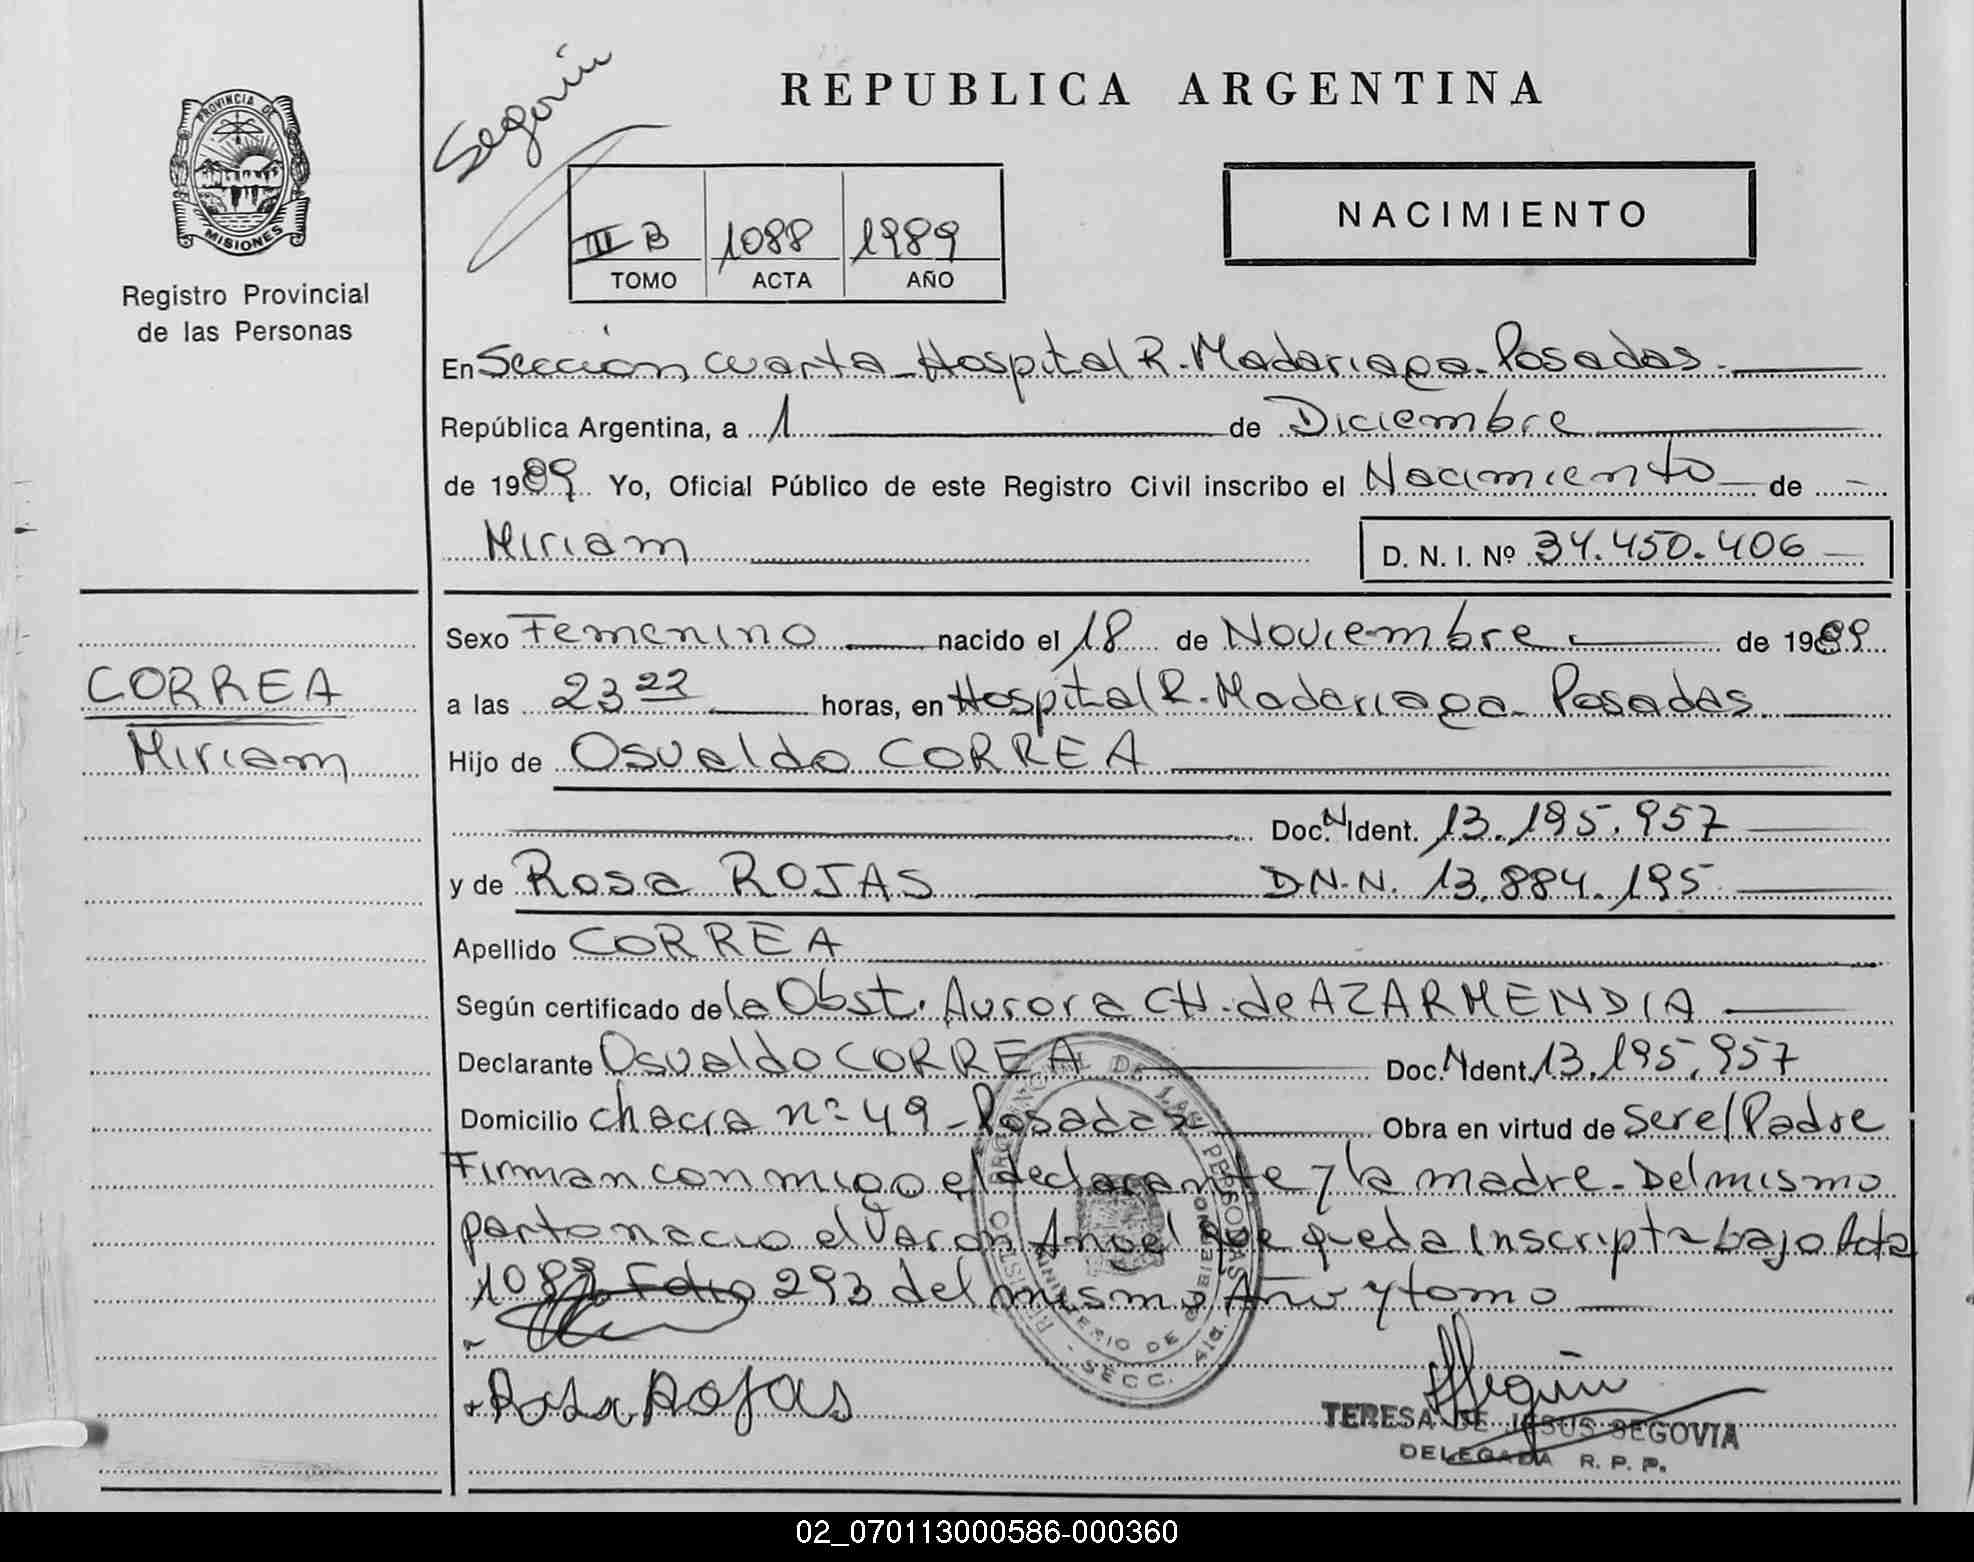 Segovia
REPUBLICA ARGENTINA
PROVINCIA DE
MISIONES
Registro Provincial
de las Personas
III B 1088 1989
TOMO ACTA AÑO
NACIMIENTO
En Sección cuarta - Hospital R. Madariaga - Posadas.
República Argentina, a 1 de Diciembre
de 1989 Yo, Oficial Público de este Registro Civil inscribo el Nacimiento de
Miriam D. N. I. Nº 34.450.406
Sexo Femenino nacido el 18 de Noviembre de 1989
CORREA
Miriam
a las 23 22 horas, en Hospital R. Madariaga - Posadas.
Hijo de Osvaldo CORREA
Doc. N Ident. 13.195.957
y de Rosa ROJAS D.N.N. 13.884.195
Apellido CORREA
Según certificado de la Obst. Aurora CH. de AZARMENDIA
Declarante Osvaldo CORREA Doc. N Ident. 13.195.957
Domicilio chacra nº 49 - Posadas Obra en virtud de ser el Padre
Firman conmigo el declarante y la madre - Del mismo
parto nacio el Varon Angel que queda inscripta bajo Acta
1089 Folio 293 del mismo Año y tomo
REGISTRO PROVINCIAL DE LAS PERSONAS
MINISTERIO DE GOBIERNO
- SECC. 4ta.
Rosa Rojas
TERESA DE JESUS SEGOVIA
DELEGADA R. P. P.
02_070113000586-000360